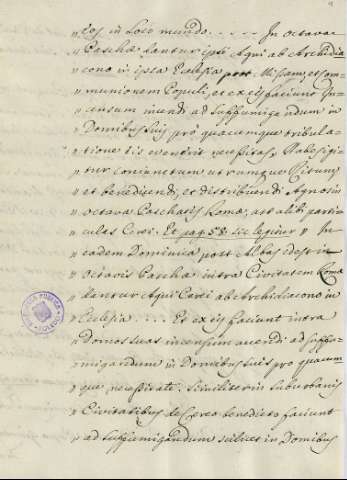 " cos in Loco mundo. . . . . In octava
" Pascha dantur ipsi Agni ab Archidia
" cono in ipsa Ecclesia post Missam, et com-
" munionem Populi, et ex ijs faciunt In-
" censum incendi ad suffumigandum in
" Domibus suis pro quacumque tribula-
" tione eis evenerit necessitas, Habes igi-
" tur coniunctum utrumque Ritum,
" et benedicendi, et distribuendi Agnos in
" octava Paschatis Romæ, ast alibi parti-
" culas Cerei. Et pag. 58. sic legitur " In
" eadem Dominica post Albas idest in
" octavis Pascha intra Civitatem Roma
" dantur Agni Cerei ab Archidiacono in
" Ecclesia . . . . . Et ex ijs faciunt intra
" Domos suas incensum accendi ad suffu-
" migandum in Domibus suis pro quacum-
" que necessitate. Similiter in suburbanis
" Civitatibus de Cereo benedicto faciunt
" ad suffumigandum scilicet in Domibus
BIBLIOTECA PUBLICA
TOLEDO